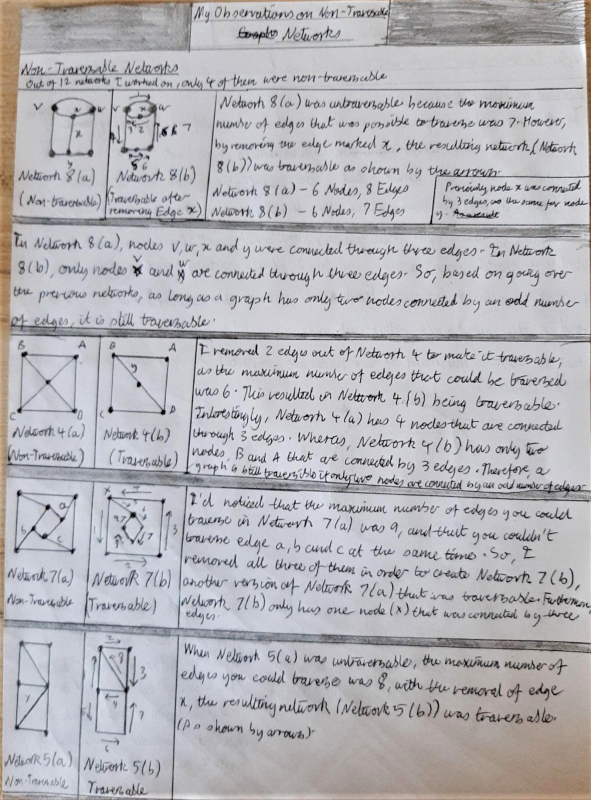 My Observations on Non-Traversable
Graphs Networks
Non-Traversable Networks
Out of 12 networks I worked on, only 4 of them were non-traversable
v w
x
y
Network 8(a)
(Non-traversable)
Network 8(b)
(Traversable after
removing Edge x)
Network 8(a) was untraversable because the maximum
number of edges that was possible to traverse was 7. However,
by removing the edge marked x, the resulting network (Network
8(b)) was traversable as shown by the arrows.
Network 8(a) - 6 Nodes, 8 Edges
Network 8(b) - 6 Nodes, 7 Edges
Previously node x was connected
by 3 edges, as the same for node
y.
In Network 8(a), nodes v, w, x and y were connected through three edges. In Network
8(b), only nodes v and w are connected through three edges. So, based on going over
the previous networks, as long as a graph has only two nodes connected by an odd number
of edges, it is still traversable.
B A
C D
Network 4(a)
(Non-Traversable)
B A
y
C D
Network 4(b)
(Traversable)
I removed 2 edges out of Network 4 to make it traversable,
as the maximum number of edges that could be traversed
was 6. This resulted in Network 4(b) being traversable.
Interestingly, Network 4(a) has 4 nodes that are connected
through 3 edges. Wheras, Network 4(b) has only two
nodes, B and A that are connected by 3 edges. Therefore a
graph is still traversible if only two nodes are connected by an odd number of edges
a
b
c
Network 7(a)
Non-Traversable
x
Network 7(b)
(Traversable)
I'd noticed that the maximum number of edges you could
traverse in Network 7(a) was 9, and that you couldn't
traverse edge a, b and c at the same time. So, I
removed all three of them in order to create Network 7(b),
another version of Network 7(a) that was traversable. Furthermore,
Network 7(b) only has one node (x) that was connected by three
edges.
x
Network 5(a)
Non-Traversable
Network 5(b)
Traversable
When Network 5(a) was untraversable, the maximum number of
edges you could traverse was 8, with the removal of edge
x, the resulting network (Network 5(b)) was traversable.
(As shown by arrows).